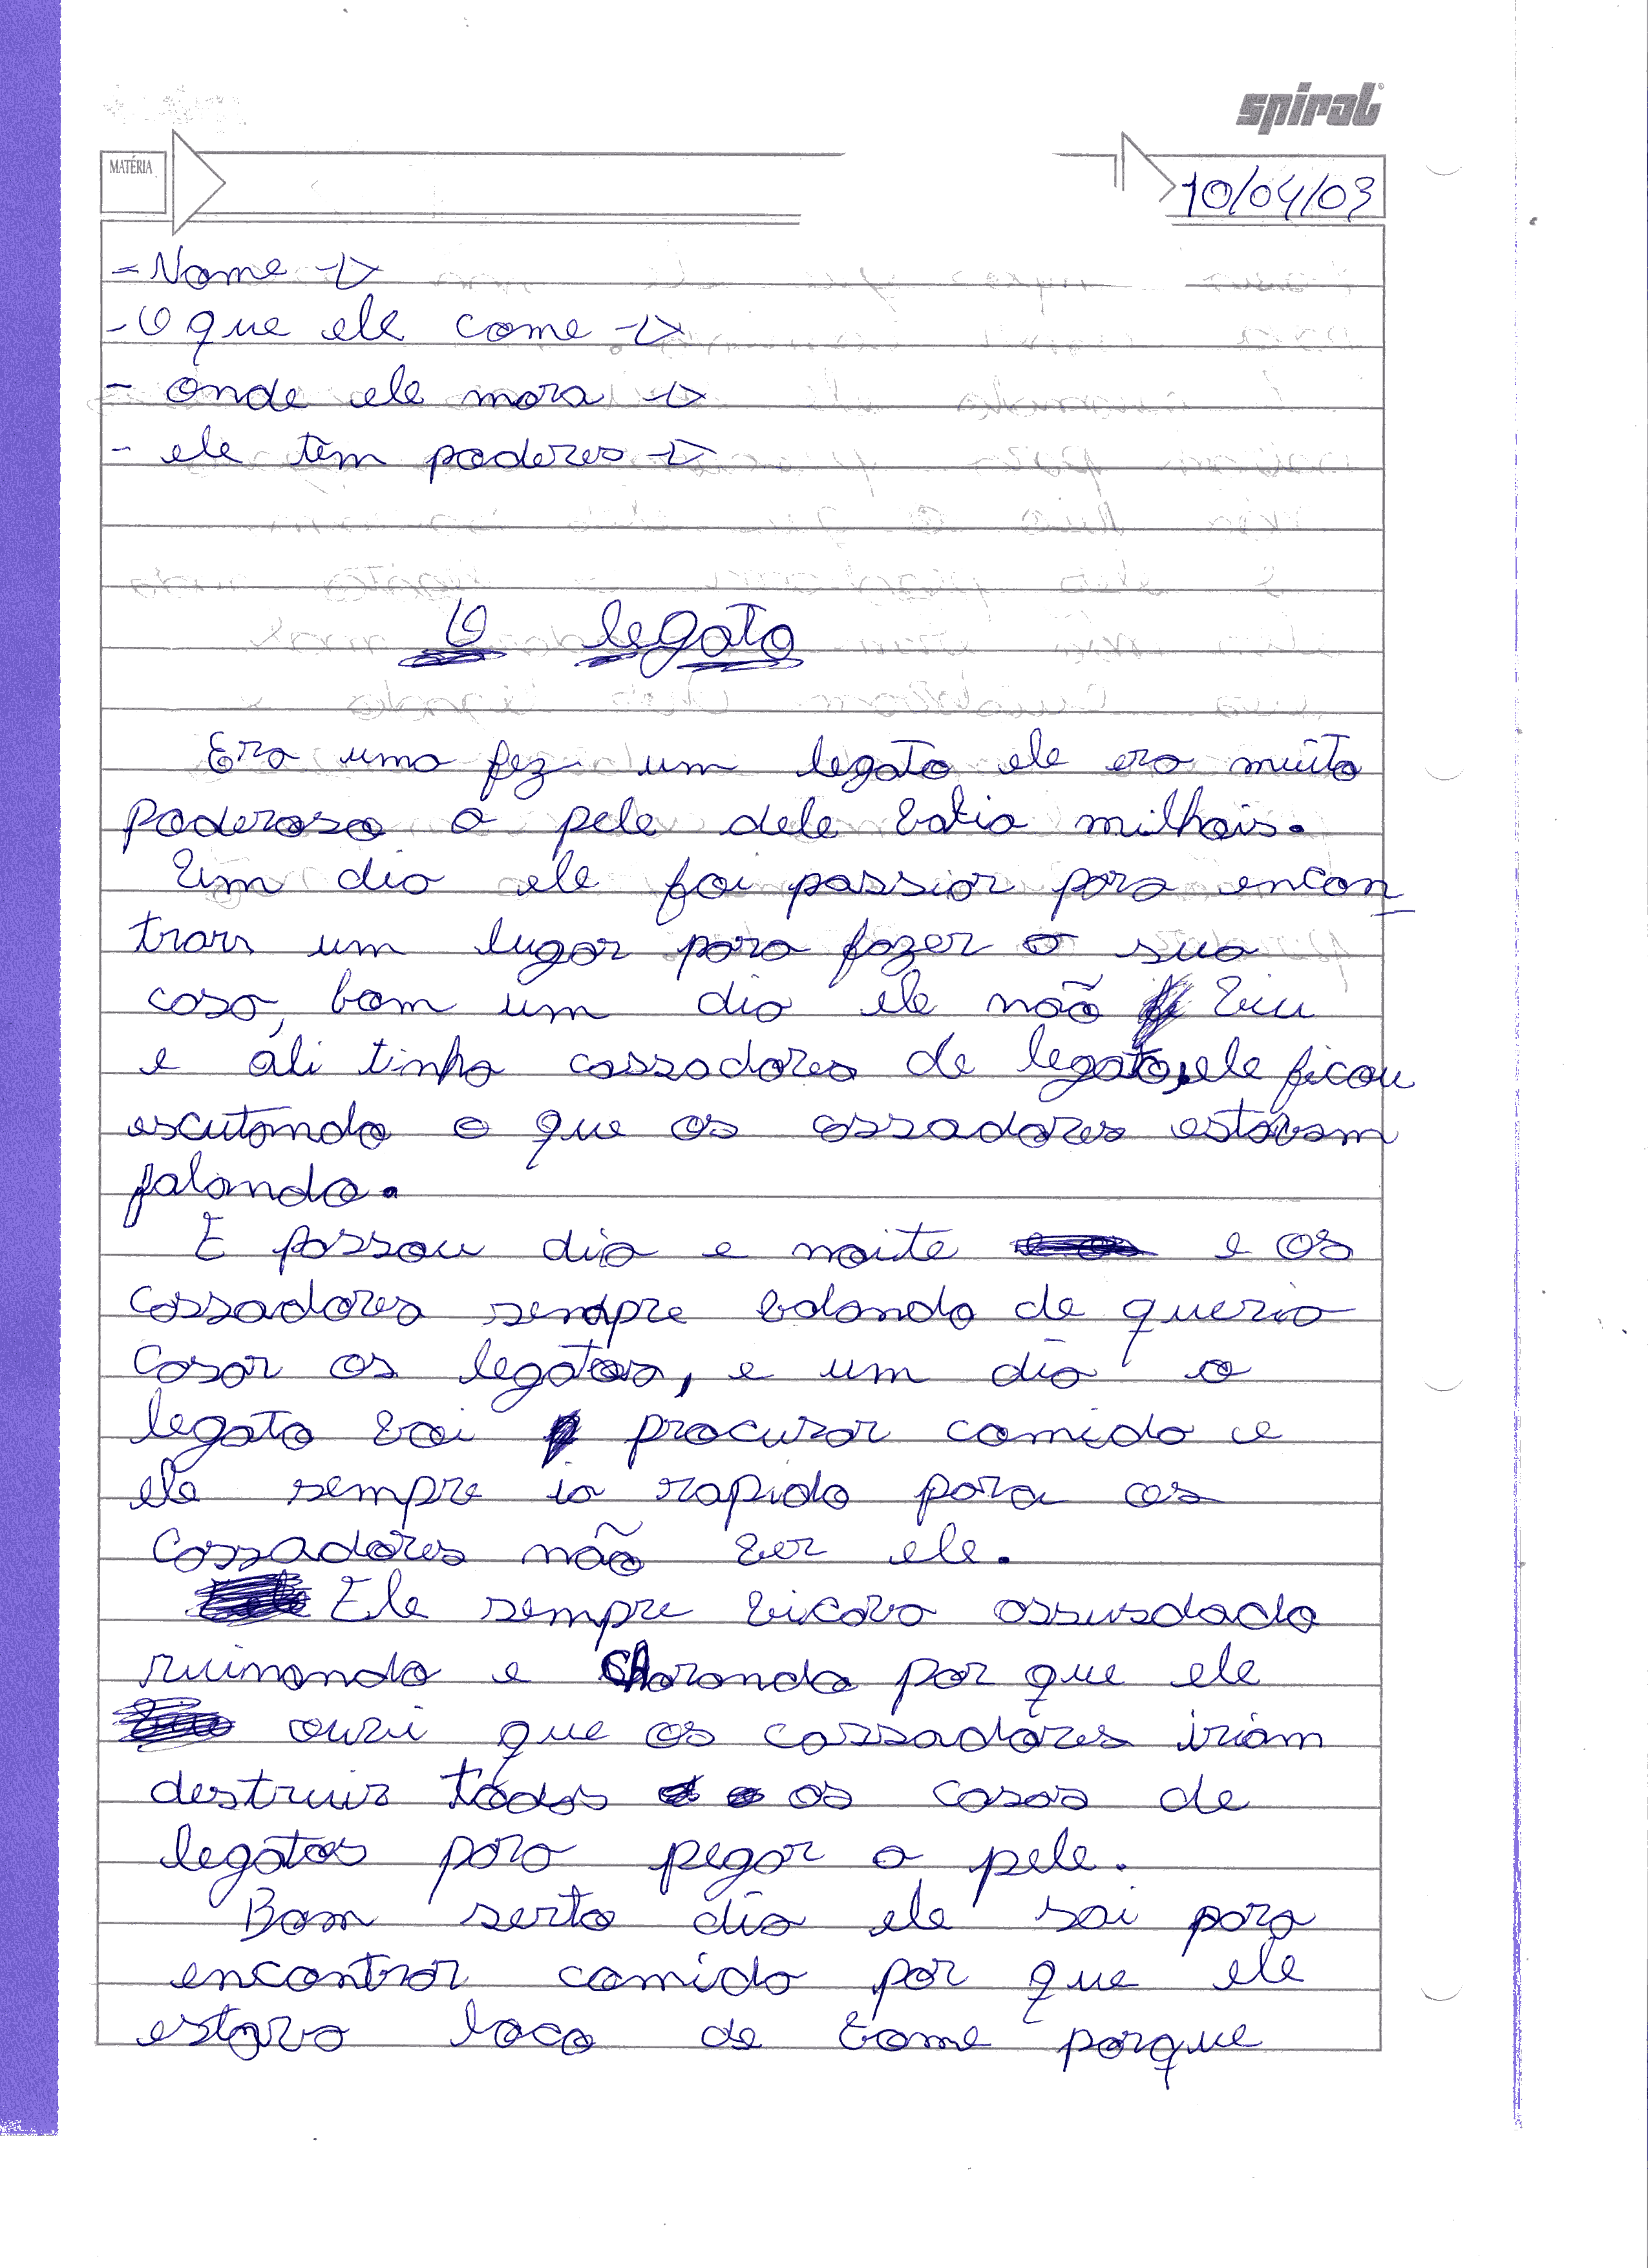 spiral
MATÉRIA
10/04/03
- Nome ->
- O que ele come ->
- onde ele mora ->
- ele têm poderes ->
O legato
Era uma fez um legato ele era muito
poderoso a pele dele valia milhais.
Um dia ele foi passiar para encon
trar um lugar para fazer a sua
casa, bom um dia ele não viu
e ali tinha cassadores de legato, ele ficou
escutando o que os assadores estavam
falando.
E passou dia e noite e os
cassadores sempre valando de queria
casar os legatos, e um dia o
legato vai procurar comida e
ele sempre ia rapido para os
cassadores não ver ele.
Ele sempre vicava assusdado
ruimando e chorando por que ele
ouvi que os cassadores iriam
destruir todos as casas de
legatos para pegar a pele.
Bom serto dia ele sai para
encontrar comida por que ele
estava loco de vome porque